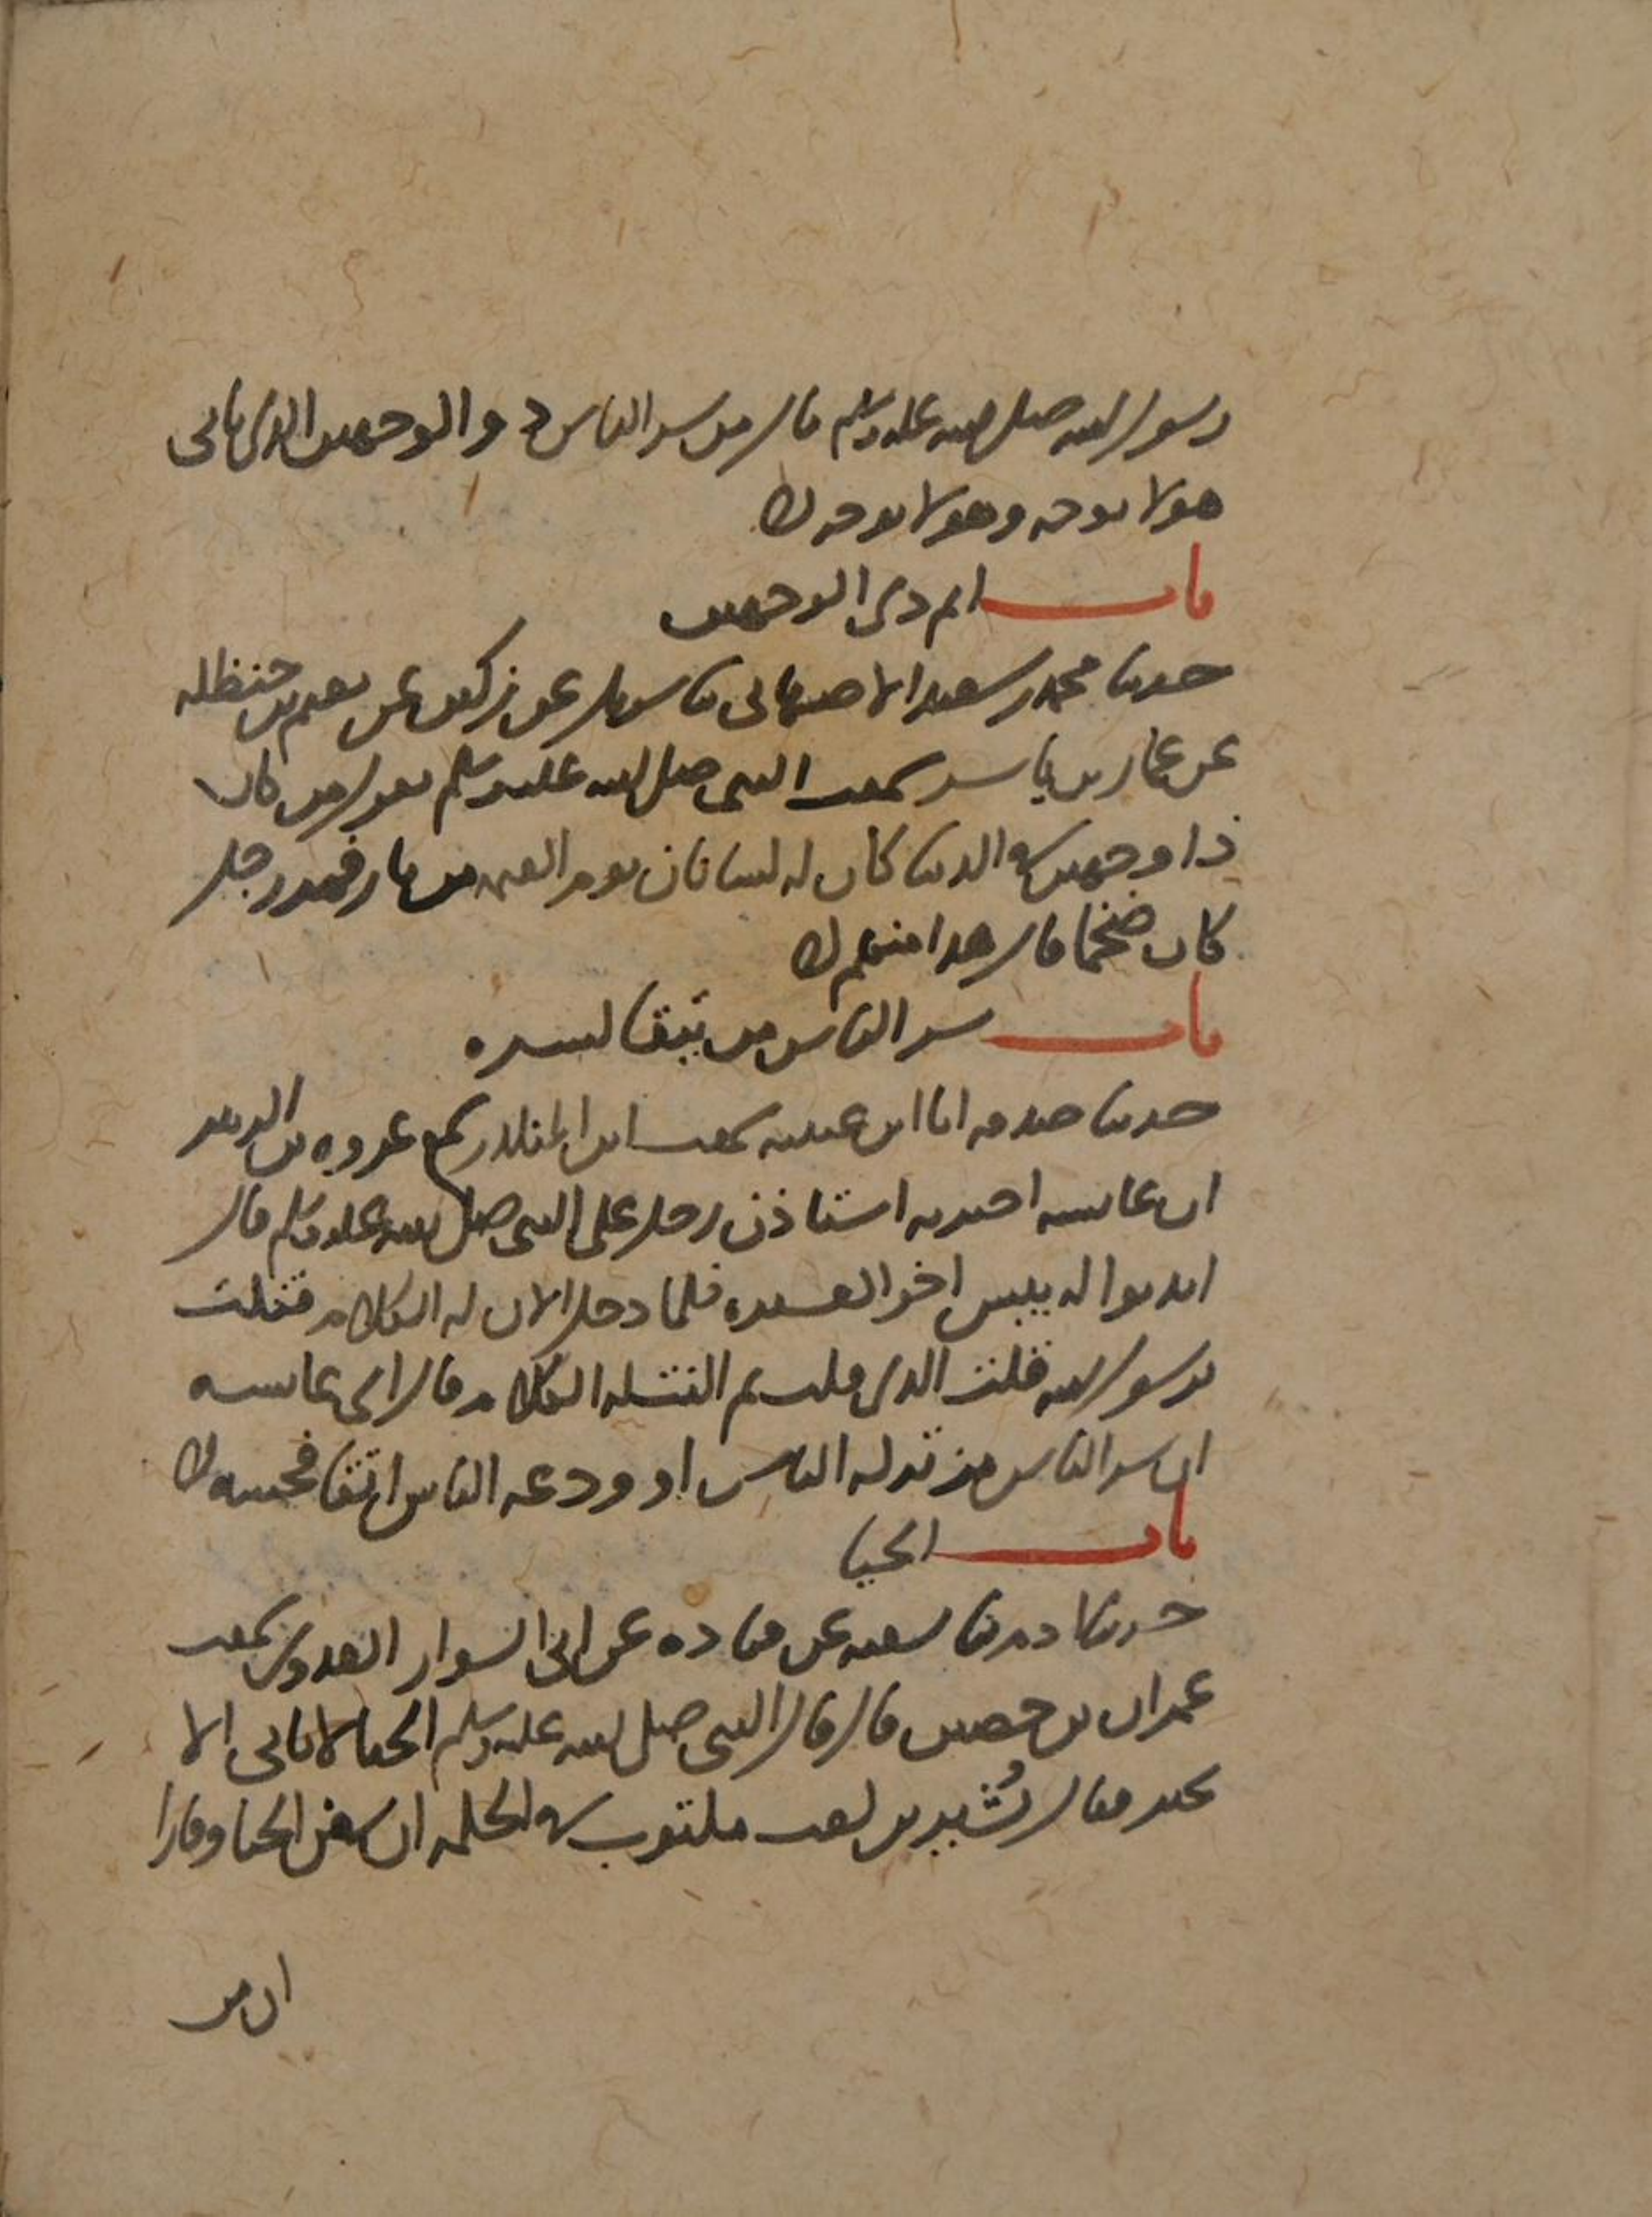 رسول الله صلى الله عليه وسلم قال من شر الناس ذو الوجهين الذي ياتي
هولا بوجه وهولا بوجه
باب اثم ذي الوجهين
حدثنا محمد بن سعيد الاصبهاني ثنا شريك عن ركين عن نعيم بن حنظله
عن عمار بن ياسر سمعت النبي صلى الله عليه وسلم يقول من كان
ذا وجهين في الدنيا كان له لسانان يوم القيمه من نار فمر رجل
كان ضخما قال هذا منهم
باب شر الناس من يتقا لشره
حدثنا صدقه انا ابن عيينه سمعت ابن المنكدر سمع عروه بن الزبير
ان عايشه اخبرته استاذن رجل على النبي صلى الله عليه وسلم قال
ايذنوا له بيس اخو العشيره فلما دخل الان له الكلام فقلت
يرسول الله قلت الذي قلت ثم النت له الكلام قال اي عايشه
ان شر الناس من تركه الناس او ودعه الناس اتقا فحشه
باب الحيا
حدثنا ادم ثنا شعبه عن قتاده عن ابي السوار العدوي سمعت
عمران بن حصين قال قال النبي صلى الله عليه وسلم الحيا لا ياتي الا
بخير فقال بُشير بن كعب مكتوب في الحكمه ان من الحيا وقارا
ان من